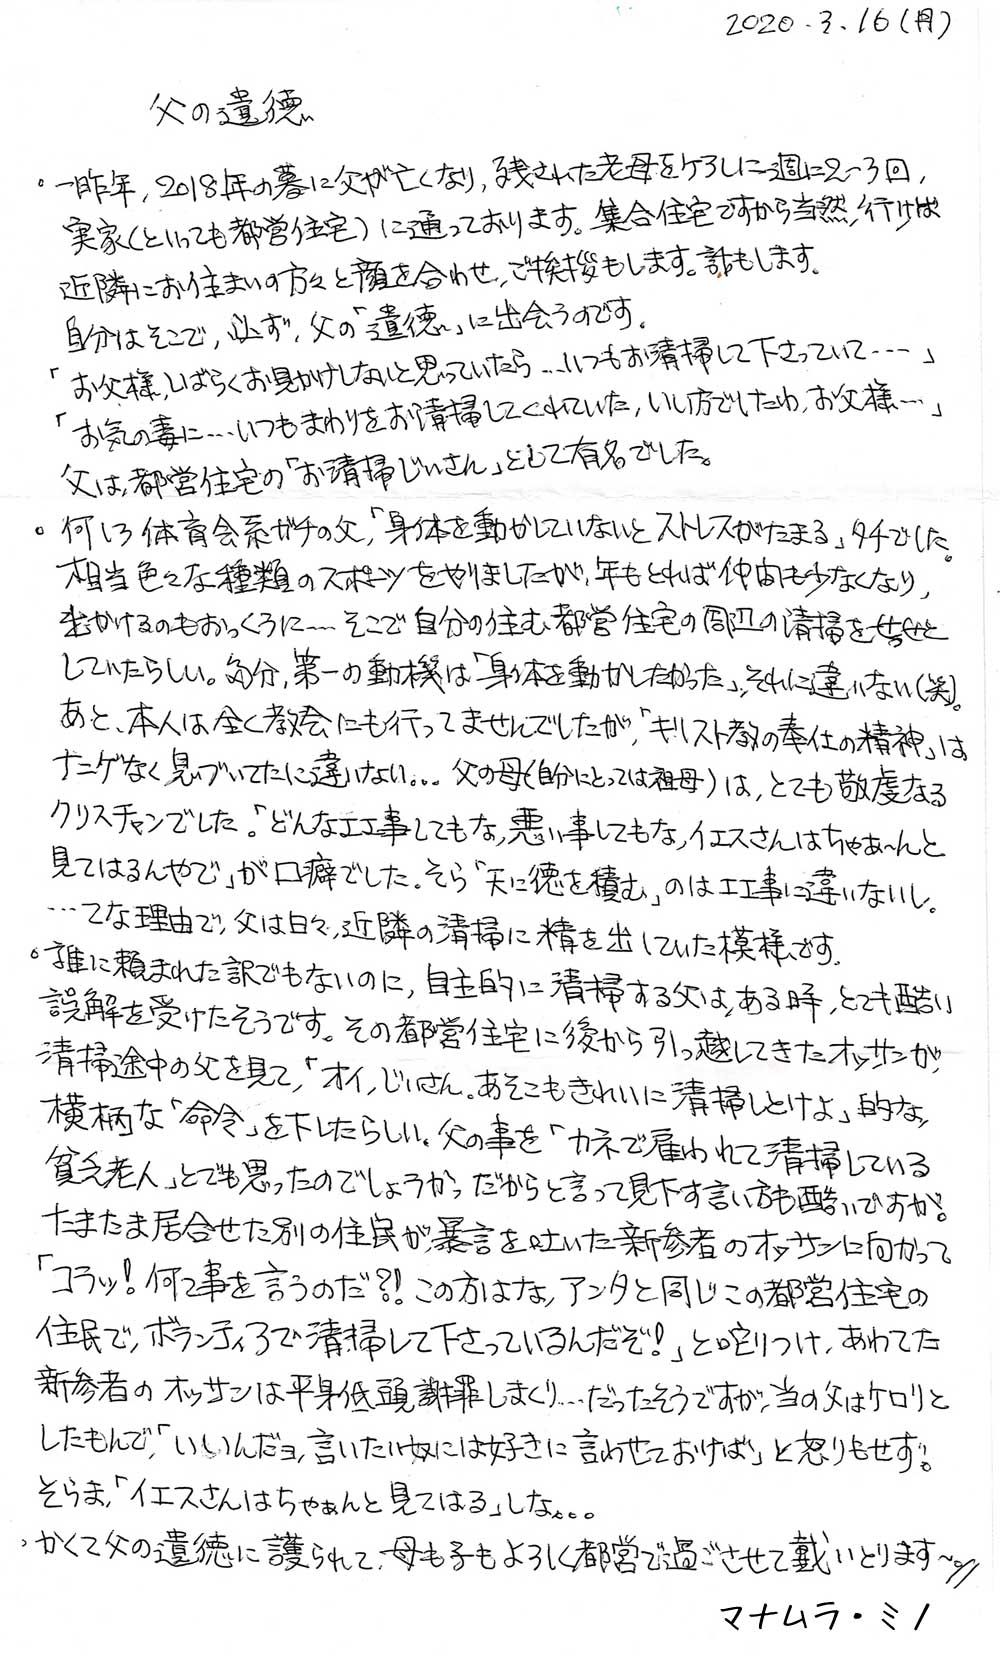 2020.3.16(月)
父の遺徳
。一昨年,2018年の暮に父が亡くなり,残された老母をケアしに週に2~3回,
実家(といっても都営住宅)に通っております。集合住宅ですから当然,行けば
近隣にお住まいの方々と顔を合わせ,ご挨拶もします。話もします。
自分はそこで,必ず,父の「遺徳」に出会うのです。
「お父様,しばらくお見かけしないと思っていたら…いつもお清掃して下さっていて…」
「お気の毒に…いつもまわりをお清掃してくれていた,いい方でしたわ,お父様…」
父は,都営住宅の「お清掃じいさん」として有名でした。
。何しろ体育会系ガチの父,「身体を動かしていないとストレスがたまる」タチでした。
相当色々な種類のスポーツをやりましたが,年もとれば仲間も少なくなり,
出かけるのもおっくうに…そこで自分の住む都営住宅の周辺の清掃をせっせと
していたらしい。多分,第一の動機は「身体を動かしたかった」,それに違いない(笑)。
あと、本人は全く教会にも行ってませんでしたが,「キリスト教の奉仕の精神」は
ナニゲなく息づいてたに違いない... 父の母(自分にとっては祖母)は,とても敬虔なる
クリスチャンでした。「どんなエエ事してもな,悪い事してもな,イエスさんはちゃあ~んと
見てはるんやで」が口癖でした。そら「天に徳を積む」のはエエ事に違いないし。
…てな理由で,父は日々,近隣の清掃に精を出していた模様です.
。誰に頼まれた訳でもないのに,自主的に清掃する父は,ある時,とても酷い
誤解を受けたそうです。その都営住宅に後から引っ越してきたオッサンが,
清掃途中の父を見て,「オイ,じいさん。あそこもきれいに清掃しとけよ」的な,
横柄な「命令」を下したらしい。父の事を「カネで雇われて清掃している
貧乏老人」とでも思ったのでしょうか,だからと言って見下す言い方も酷いですが。
たまたま居合せた別の住民が,暴言を吐いた新参者のオッサンに向かって
「コラッ!何て事を言うのだ?!この方はな,アンタと同じこの都営住宅の
住民で,ボランティアで清掃して下さっているんだぞ!」と叱りつけ,あわてた
新参者のオッサンは平身低頭謝罪しまくり…だったそうですが,当の父はケロリと
したもんで,「いいんだヨ,言いたい奴には好きに言わせておけば」と怒りもせず。
そらま,「イエスさんはちゃぁんと見てはる」しな...
。かくて父の遺徳に護られて,母も子もよろしく都営で過ごさせて戴いとります~。
マナムラ・ミノ